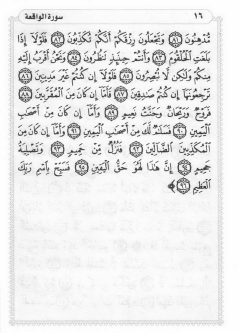 ١٦ سورة الواقعة
مُّدْهِنُونَ ﴿٨١﴾ وَتَجْعَلُونَ رِزْقَكُمْ أَنَّكُمْ تُكَذِّبُونَ ﴿٨٢﴾ فَلَوْلَا إِذَا
بَلَغَتِ الْحُلْقُومَ ﴿٨٣﴾ وَأَنتُمْ حِينَئِذٍ تَنظُرُونَ ﴿٨٤﴾ وَنَحْنُ أَقْرَبُ إِلَيْهِ
مِنكُمْ وَلَٰكِن لَّا تُبْصِرُونَ ﴿٨٥﴾ فَلَوْلَا إِن كُنتُمْ غَيْرَ مَدِينِينَ ﴿٨٦﴾
تَرْجِعُونَهَا إِن كُنتُمْ صَٰدِقِينَ ﴿٨٧﴾ فَأَمَّا إِن كَانَ مِنَ الْمُقَرَّبِينَ ﴿٨٨﴾
فَرَوْحٌ وَرَيْحَانٌ وَجَنَّتُ نَعِيمٍ ﴿٨٩﴾ وَأَمَّا إِن كَانَ مِنْ أَصْحَٰبِ
الْيَمِينِ ﴿٩٠﴾ فَسَلَٰمٌ لَّكَ مِنْ أَصْحَٰبِ الْيَمِينِ ﴿٩١﴾ وَأَمَّا إِن كَانَ مِنَ
الْمُكَذِّبِينَ الضَّالِّينَ ﴿٩٢﴾ فَنُزُلٌ مِّنْ حَمِيمٍ ﴿٩٣﴾ وَتَصْلِيَةُ
جَحِيمٍ ﴿٩٤﴾ إِنَّ هَٰذَا لَهُوَ حَقُّ الْيَقِينِ ﴿٩٥﴾ فَسَبِّحْ بِاسْمِ رَبِّكَ
الْعَظِيمِ ﴿٩٦﴾